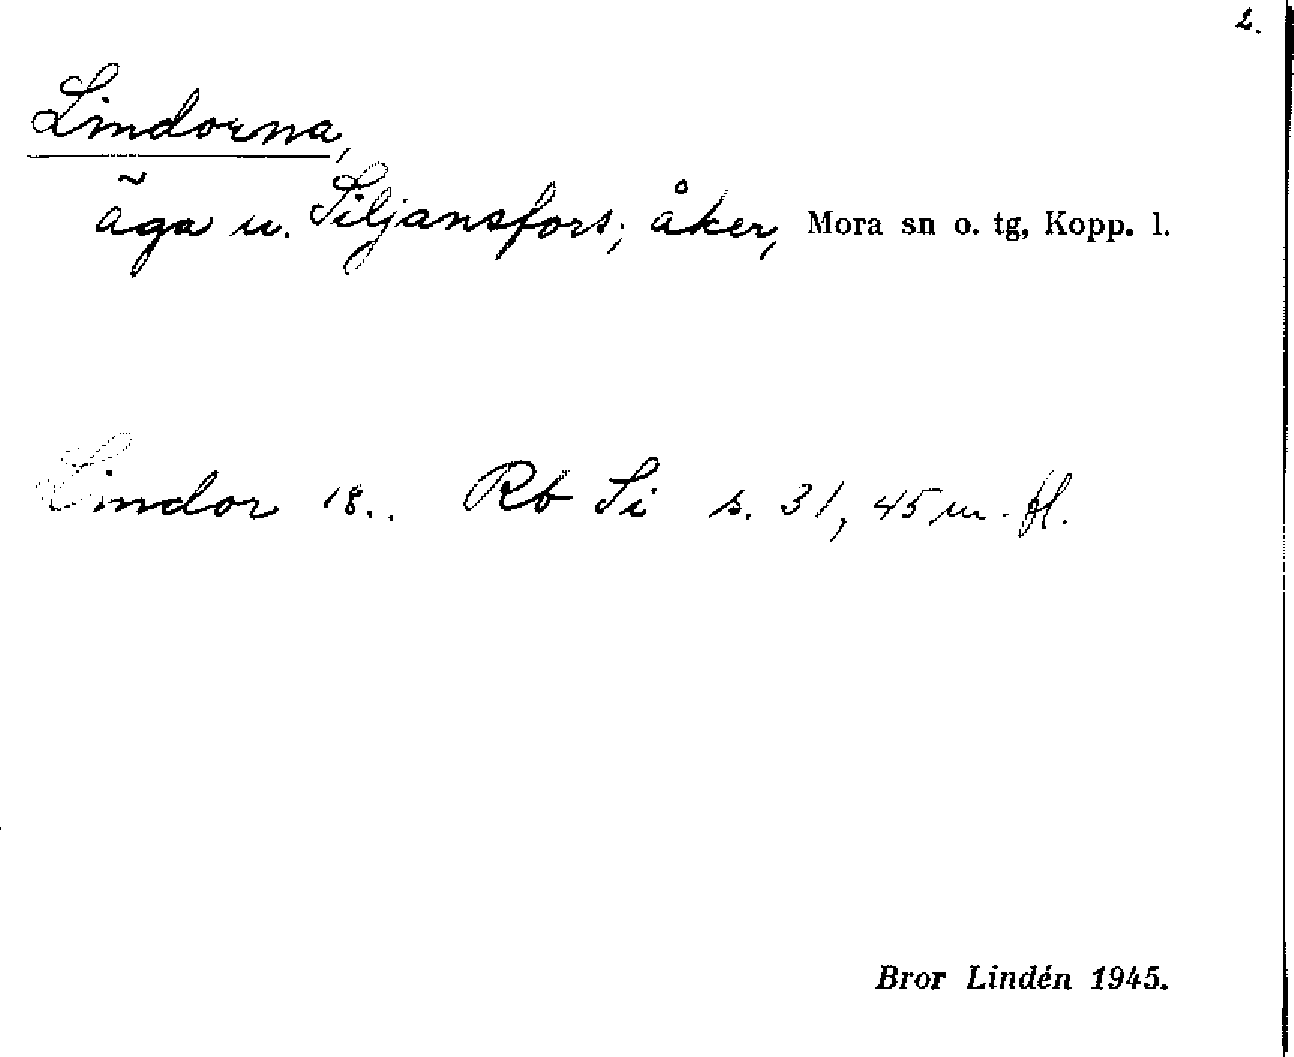 2.
Lindorna,
äga u. Siljansfors; åker, Mora sn o. tg, Kopp. l.
Lindor 18.. Rb Si s. 31, 45 m. fl.
Bror Lindén 1945.